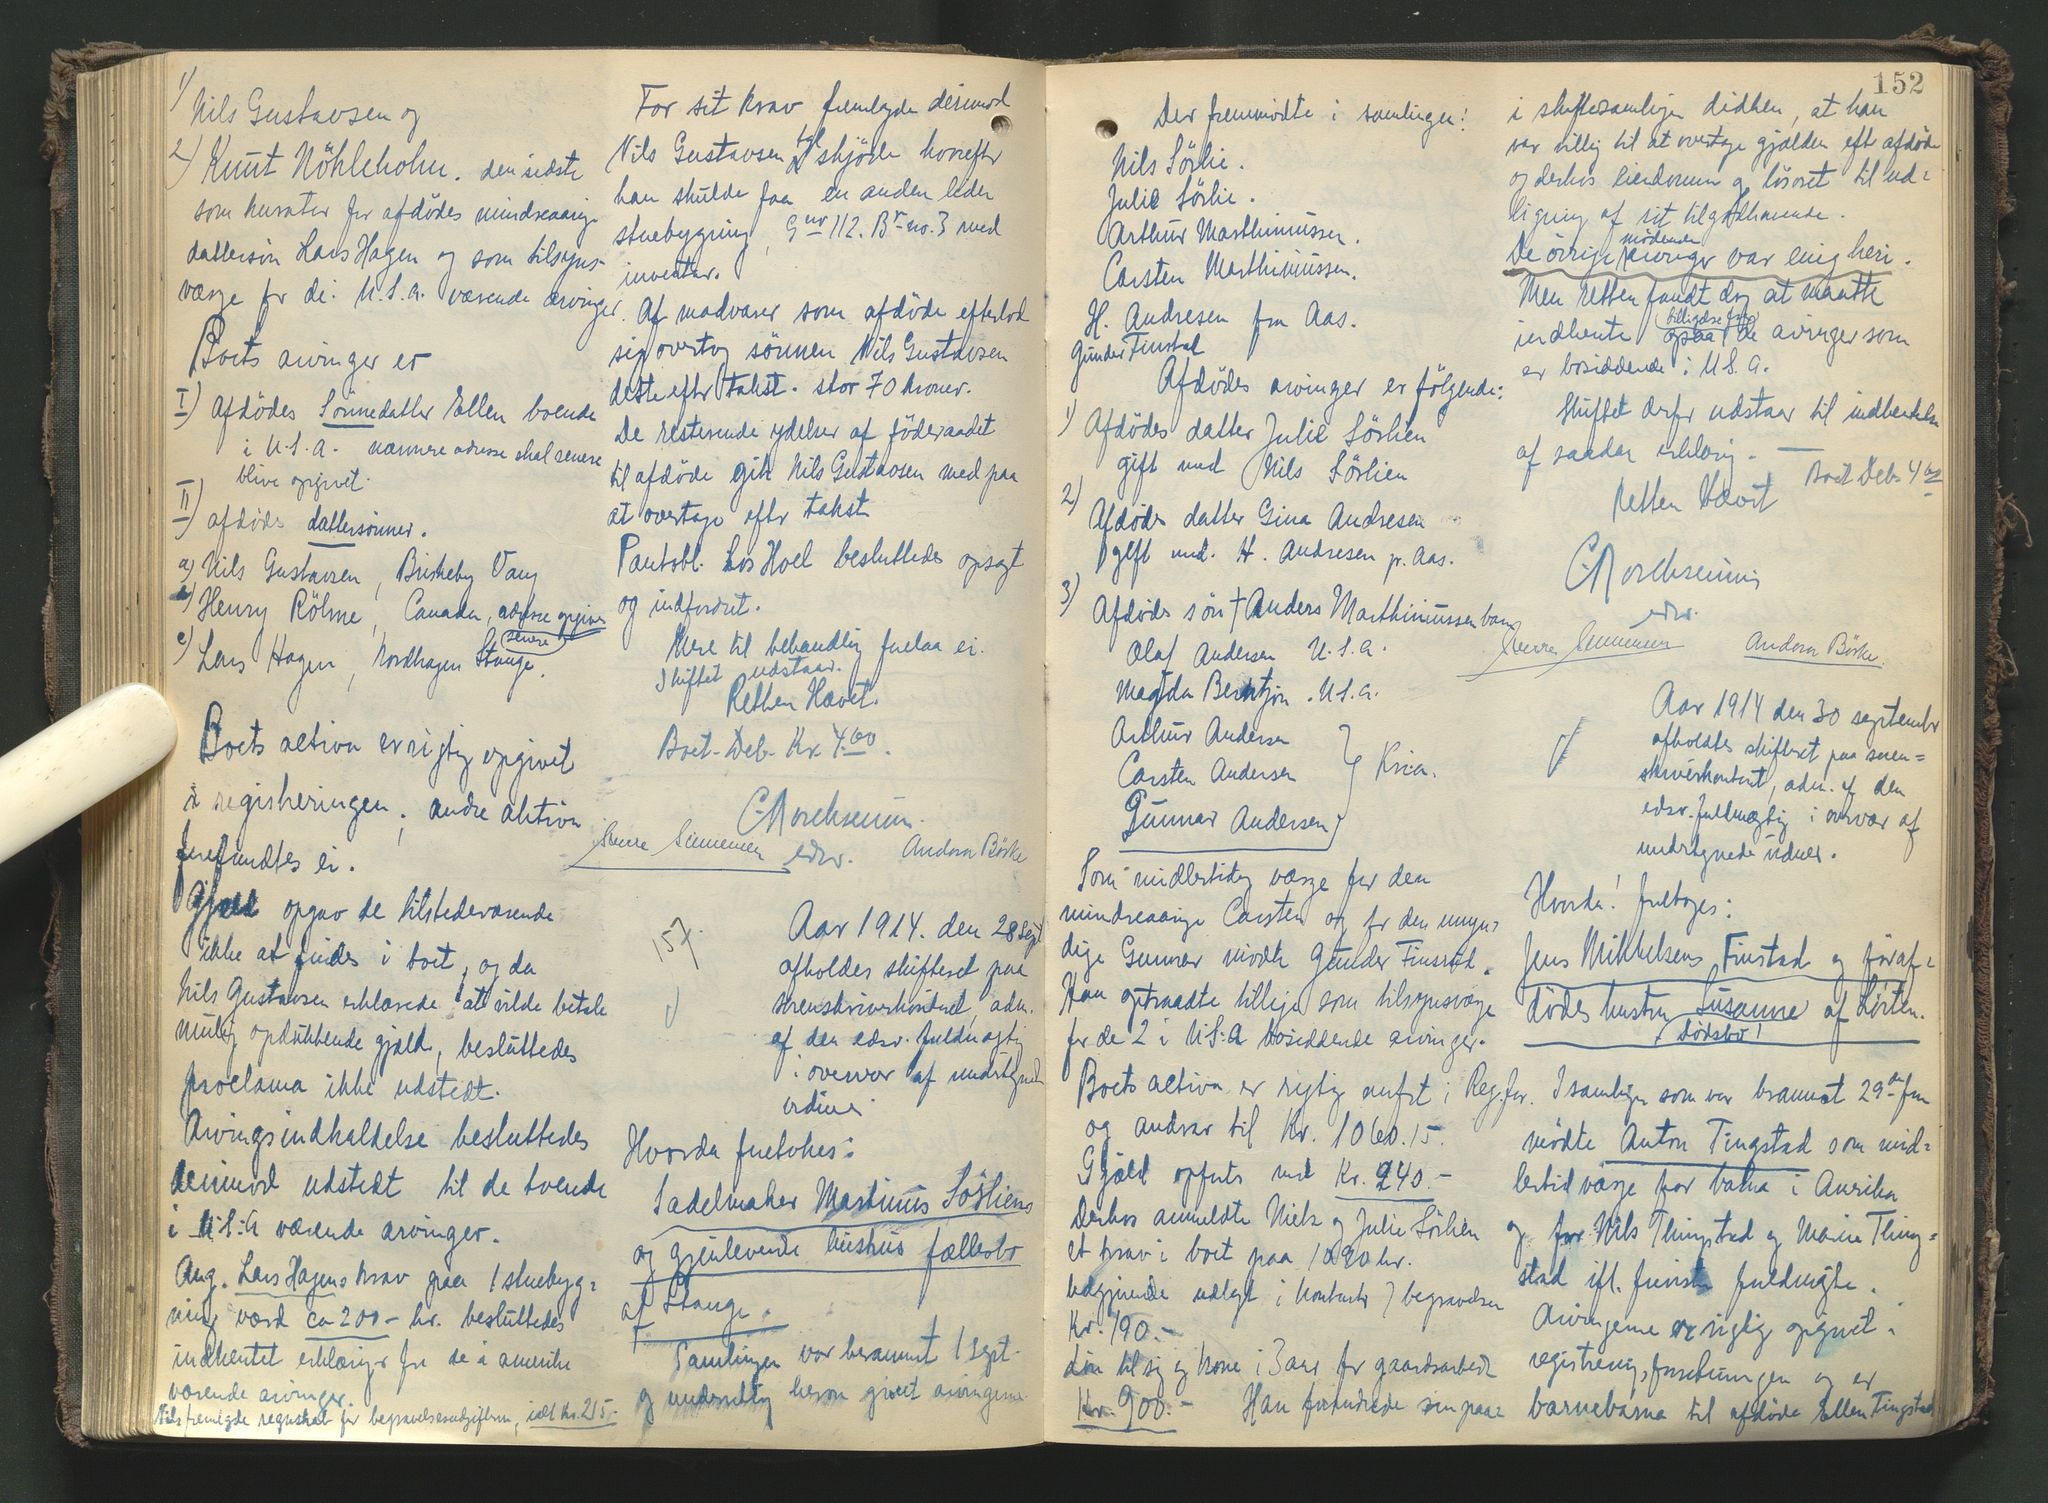 1)
Nils Gustavsen og
2) Knut Nöhleholm. den sidste
som kurator for afdødes mindreaarige
dattersøn Lars Hagen og som tilsyns-
værge for de i U.S.A. værende arvinger.
Boets arvinger er
I) Afdødes Sønnedatter Ellen boende
i U.S.A. nærmere adresse skal senere
blive opgivet.
II) afdødes dattersønner.
a) Nils Gustavsen, Brickeby Vang
b) Henry Röhne, Canada, adresse opgives
senere
c) Lars Hagen, Nordhagen Stange.
Boets aktiva er rigtig opgivet
i registreringen, andre aktiva
forefandtes ei.
Gjæld opgav de tilstedeværende
ikke at findes i boet, og da
Nils Gustavsen erklærede at vilde betale
mulig opdukkende gjæld, besluttedes
proclama ikke udstedt.
Arvingsindkaldelse besluttedes
derimod udstedt til de tvende
i U.S.A værende arvinger.
Ang. Lars Hagens krav paa 1 stuebyg-
ning værd ca 200- kr. besluttedes
indhentet erklæring fra de i amerika
værende arvinger.
Nils fremlagde regnskab for begravelsesudgifterne, ialt kr. 215.-
For sit krav fremlagde derimod
Nils Gustavsen tgl skjøde hvorefter
han skulde faa en anden liden
stuebygning, Gno 112. Br-no. 3 med
inventar.
Af madvarer som afdøde efterlod
sig overtog sønnen Nils Gustavsen
dette efter takst. stor 70 kroner.
De resterende ydelser af föderaadet
til afdøde gik Nils Gustavsen med paa
at overtage efter takst
Pantobl. hos Hoel besluttedes opsagt
og indfordret.
Mere til behandling forelaa ei.
Skiftet udstaar.
Retten Hævet.
Boet Deb. Kr. 4.00.
edsv.
Andora Börke
157.
Aar 1914. den 28 sept
afholdes skifteret paa
sorenskriverkontoret, adm.
af den edsv. fuldmægtig
i overvær af undertegnede
vidner
Hvorda foretokes:
Sadelmaker Martinus Sörliens
og gjenlevende hustrus fællesbo
af Stange.
Samlingen var berammet 1 sept.
og underretning herom givet arvingerne
152
Der fremmødte i samlingen:
Nils Sörlie.
Julie Sörlie.
Arthur Marthinussen.
Carsten Marthinussen.
H. Andresen fra Aas.
Gunder Finstad
Afdødes arvinger er følgende:
1) Afdødes datter Julie Sörlien
gift med Nils Sörlien
2) Afdødes datter Gina Andresen
gift med. H. Andresen pr. Aas.
3) Afdødes søn † Anders Marthinussens barn
Olaf Andersen U.S.A.
Magda Berntzon. U.S.A.
Arthur Andersen
Carsten Andersen } Kria.
Gunnar Andersen
Som midlertidig værge for den
mindreaarige Carsten og for den umyn-
dige Gunnar mødte Gunder Finstad.
Han optraadte tillige som tilsynsværge
for de 2 i U.S.A bosiddende arvinger.
Boets aktiva er rigtig anført i Reg.for.
og andrar til Kr. 1060.15.
Gjæld opførtes med Kr. 240.-
Derhos anmeldte Niels og Julie Sörlien
et krav i boet paa 1090 kr.
udlagt i kontanter begravelsen
Kr. 190.-
løn til sig og kone i 3 aar for gaardsarbeide
Kr. 900.- Han forandrede sin paa-
i skiftesamlingen didhen, at han
var villig til at overtage gjælden efter afdøde
og derhos eiendommen og løsøret til ud-
ligning af sit tilgodehavende.
De övrige mødende arvinger var enig heri.
Men retten fandt dog at maatte
indhente tilligelse fra de arvinger som
er bosiddende i U.S.A.
Skiftet derfor udstaar til indhentelse
af saadan erklæring.
Boet Deb 4 00
Retten Hævet
edsv.
Andora Börke.
Aar 1914 den 30 september
afholdtes skifteret paa soren-
skriverkontoret, adm. af den
edsv. fuldmægtig i overvær af
undertegnede vidner.
Hvorda! foretoges:
Jens Mikkelsens Finstad og föraf-
dödes hustru Susanne af Löiten.
dødsbo!
I samlingen som var berammet 29de fm
mødte Anton Tingstad som mid-
lertid værge for børna i Amerika
og for Nils Thingstad og Marie Thing-
stad ifl. fuldmagt.
Arvingerne er rigtig opgivet i
registreringsforretningen og er
barnebarna til afdøde Ellen Tingstad